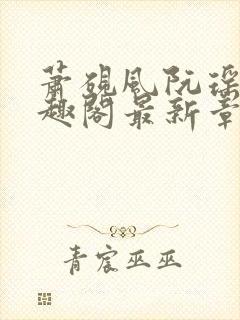 萧砚风阮瑶
趣阁最新章
青宸巫巫